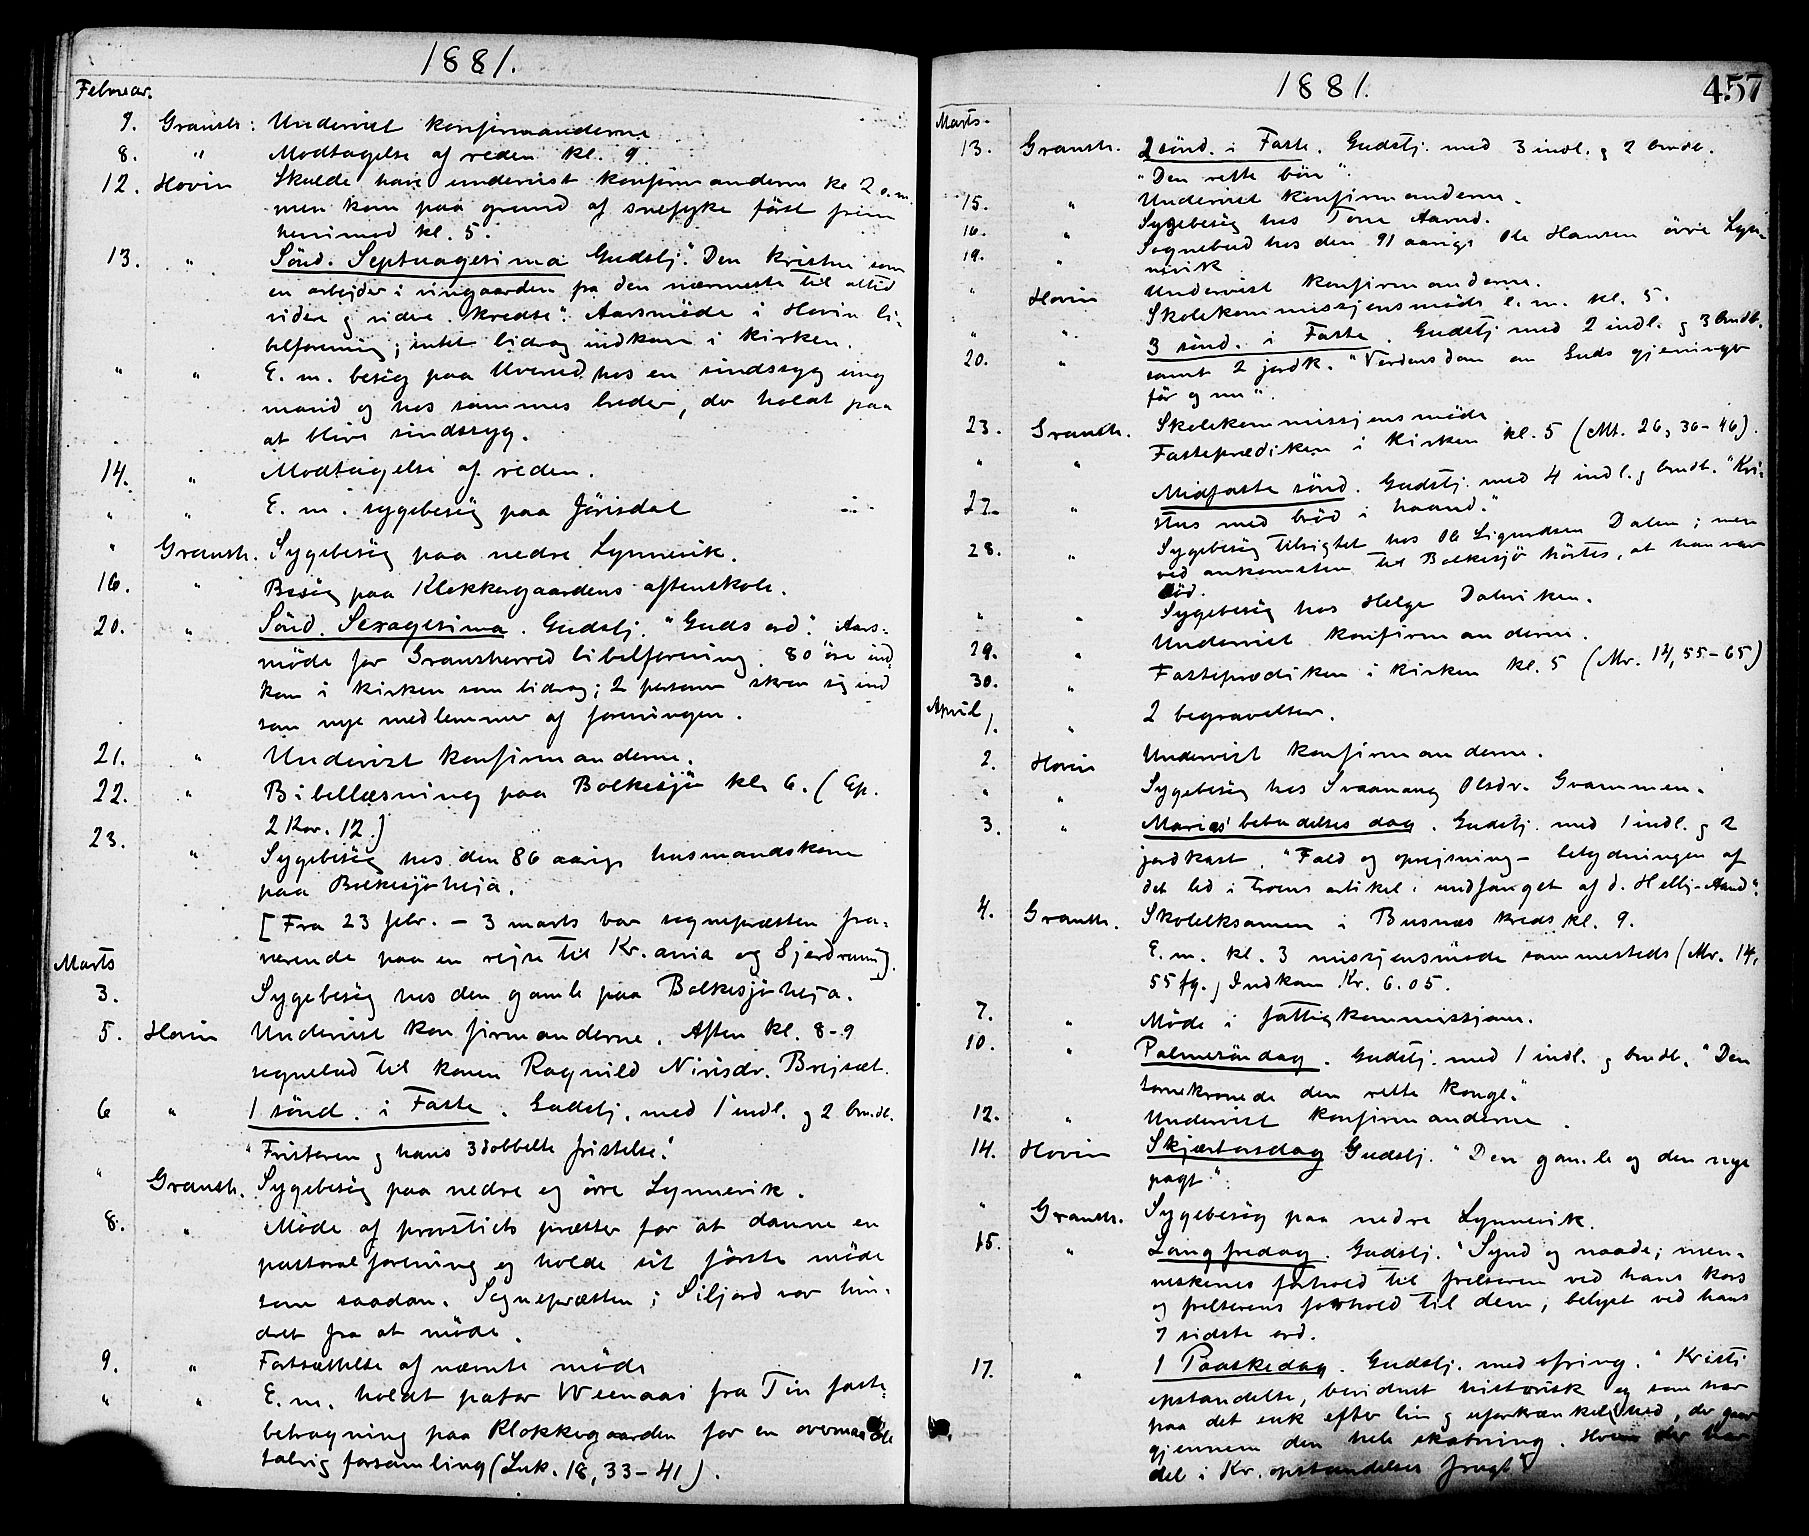 1881.
Februar.
9. Gransh: Undervist konfirmanderne
8. " Modtagelse af reden kl. 9
12. Hovin Skulde have undervist konfirmanderne kl 2 e.m.
men kom paa grund af snefyke först frem
henimod kl. 5.
13. " Sönd. Septuagesima Gudstj. "Den kristne som
en arbejder i vingaarden fra den nærmeste til altid
videre og videre kredse". Aarsmöde i Hovin bi-
belforening; intet bidrag indkom i kirken.
" " E. m. besög paa Uverud hos en sindssyg ung
mand og hos sammes broder, der holdt paa
at blive sindssyg.
14. " Modtagelse af reden.
" " E. m. sygebesög paa Jörisdal
" Gransh. Sygebesög paa nedre Lynnevik.
16. " Besög paa Klokkergaardens aftenskole.
20. " Sönd. Sexagesima. Gudstj. "Guds ord". Aars-
möde for Gransherred bibelforening. 80 öre ind-
kom i kirken som bidrag; 2 personer skrev sig ind
som nye medlemmer af foreningen.
21. " Undervist konfirmanderne.
22. " Bibellæsning paa Bolkesjö kl. 6. (Ep.
2 Kor. 12.)
23. " Sygebesög hos den 86 aarige husmandskone
paa Bolkesjöheja.
[Fra 23 febr. - 3 marts var sognepræsten fra-
værende paa en rejse til Kr.ania og Gjerdrum].
Marts
3. Sygebesög hos den gamle paa Bolkesjöheja.
5. Hovin Undervist konfirmanderne. Aften kl. 8-9
sognebud til konen Ragnild Nirisdr. Brejsæt.
6 " 1 sönd. i Faste. Gudstj. med 1 indl. og 2 brudv.
"Fristeren og hans 3dobbelte fristelse".
" Gransh. Sygebesög paa nedre og övre Lynnevik.
8. " Möde af provstiets præster for at danne en
pastoralforening og holde sit förste möde
som saadan. Sognepræsten i Siljord var hin-
dret fra at möde.
9. " Fortsættelse af nævnte möde
" " E.m. holdt pastor Weenaas fra Tin faste-
betragning paa Klokkergaarden for en overmaade
talrig forsamling (Luk. 18, 33-41).
1881.
457
Marts.
13. Gransh. 2 sönd. i Faste. Gudstj. med 3 indl. og 2 brudv.
"Den rette bön".
15. " Undervist konfirmanderne.
16. " Sygebesög hos Tone Aarud.
19. " Sognebud hos den 91 aarige Ole Hansen övre Lyn-
nevik
" Hovin Undervist konfirmanderne.
" " Skolekommissjonsmöde e.m. kl. 5.
20. " 3 sönd. i Faste. Gudstj. med 2 indl. og 3 brudv.
samt 2 jordk. "Verdens dom om Guds gjerninger
för og nu".
23. Gransh. Skolekommissjonsmöde
" " Fasteprædiken i kirken kl. 5 (Mt. 26, 36-46).
27. " Midfaste sönd. Gudstj. med 4 indl. og brudv. "Kri-
stus med bröd i haand."
28. " Sygebesög tilsigtet hos Ole Sigurdsen Dalen; men
ved ankomsten til Bolkesjö hörtes, at han var
död.
" " Sygebesög hos Helge Dalsviken.
29. " Undervist konfirmanderne.
30. " Fasteprædiken i kirken kl. 5 (Mr. 14, 55-65)
April
1. " 2 begravelser.
2. Hovin Undervist konfirmanderne.
" " Sygebesög hos Svaanaug Olsdr. Grammen.
3. " Mariæ bebudelses dag. Gudstj. med 1 indl. og 2
jordkast. "Fald og oprejsning - betydningen af
det led i troens artikel: undfanget af d. Hellig-Aand".
4. Gransh. Skoleeksamen i Busnæs kreds kl. 9.
E.m. kl. 3 missjonsmöde sammesteds (Mr. 14,
55 fg.) Indkom Kr. 6.05.
7. " Möde i fattigkommissjonen.
10. " Palmesöndag. Gudstj. med 1 indl. og brudv. "Den
tornekronede den rette konge".
12. " Undervist konfirmanderne.
14. Hovin Skjærtorsdag Gudstj. "Den gamle og den nye
pagt".
" Gransh. Sygebesög paa nedre Lynnevik.
15. " Langfredag. Gudstj. "Synd og naade; men-
neskenes forhold til frelseren ved hans kors
og frelserens forhold til dem, belyst ved hans
7 sidste ord.
17. " 1 Paaskedag. Gudstj. med ofring. "Kristi
opstandelse, bevidnet historisk og som svar
paa det suk efter liv og uforkrænkelighed, der gaar
gjennem den hele skabning. Hvem der har
del i Kr. opstandelses frugt"